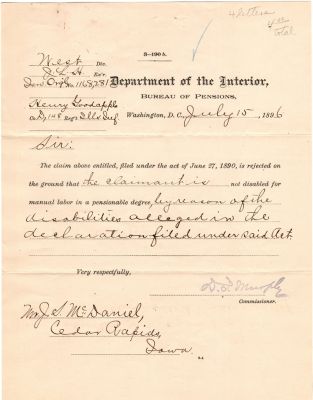 4 letters
4 00
total
3-190 b.
West Div.
J. L. H. Exr.
Inv Orig No. 1168,281
Department of the Interior,
BUREAU OF PENSIONS,
Henry Goodapple
D, 148 Regt Ills Inf
Washington, D. C., July 15, 1896
Sir:
The claim above entitled, filed under the act of June 27, 1890, is rejected on
the ground that the claimant is not disabled for
manual labor in a pensionable degree, by reason of the
disabilities alleged in the
declaration filed under said Act.
Very respectfully,
D. I. Murphy
Commissioner.
Mr J. S. McDaniel,
Cedar Rapids,
Iowa.